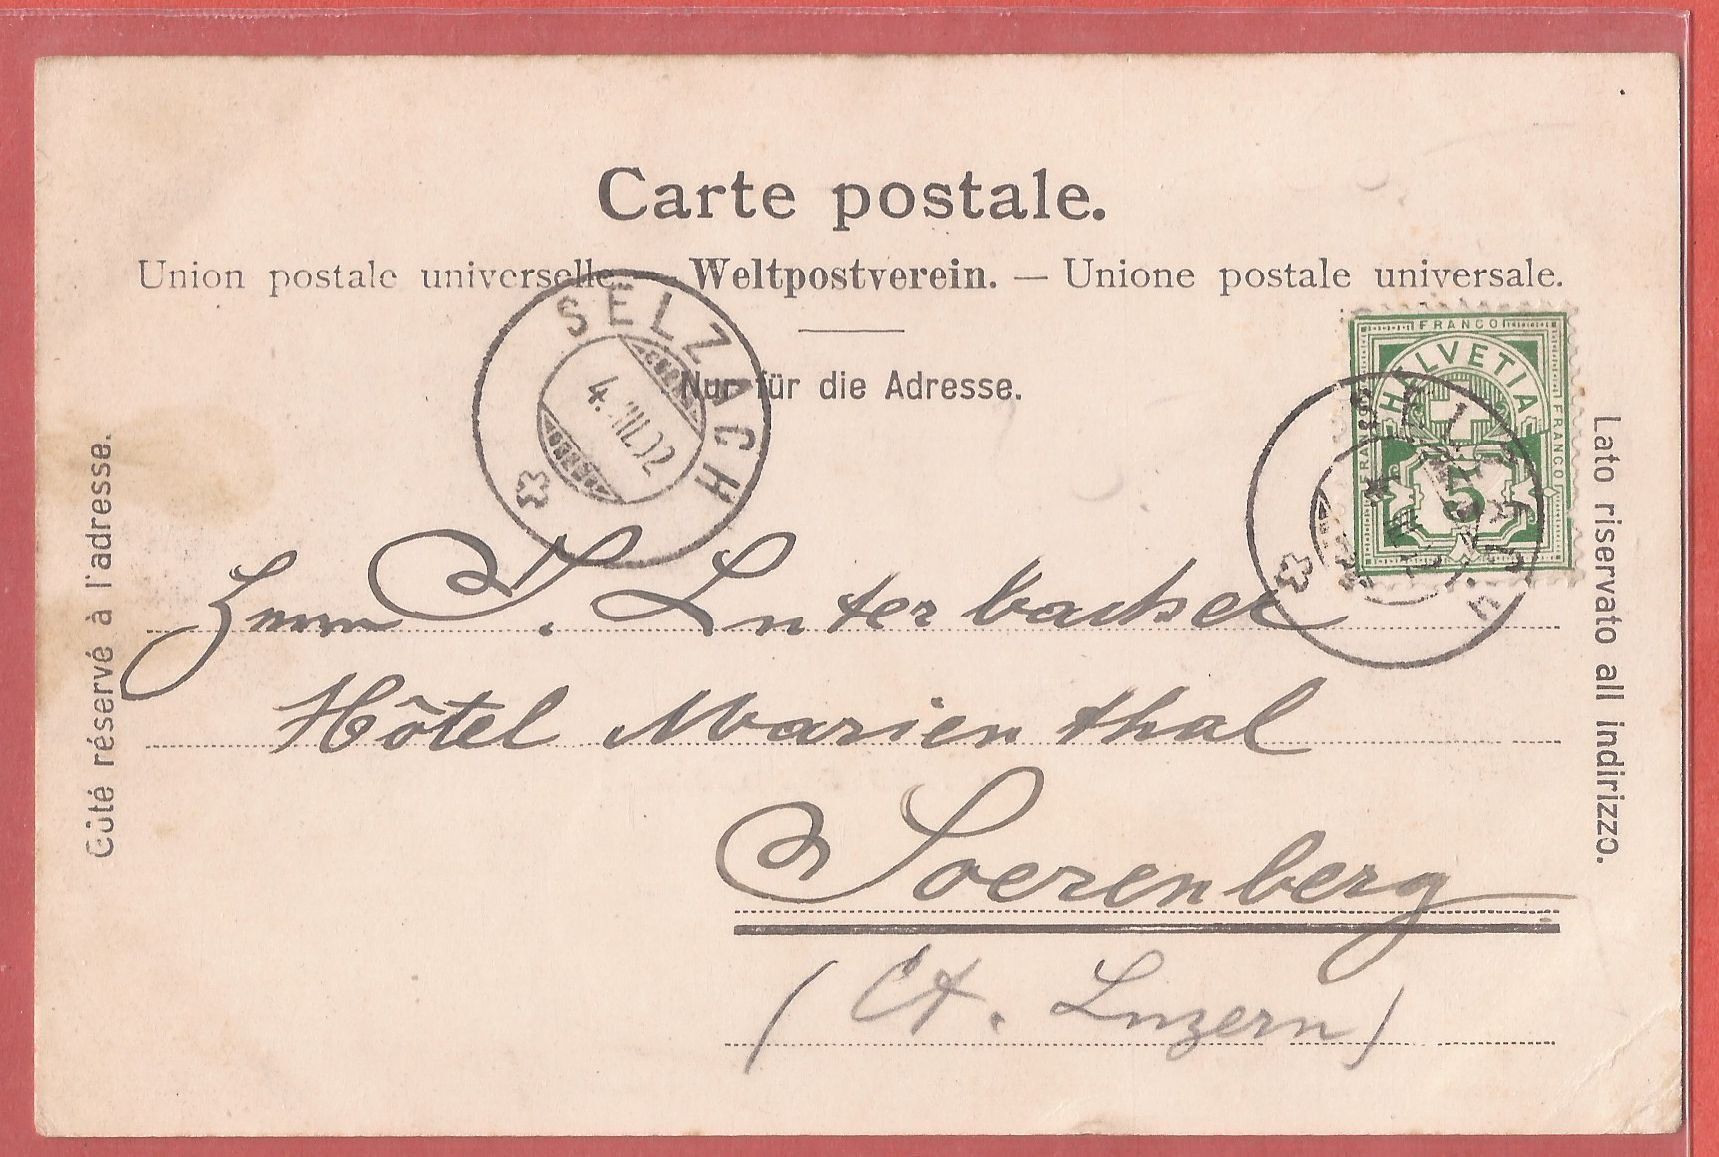 Carte postale.
Union postale universelle. — Weltpostverein. — Unione postale universale.
Nur für die Adresse.
Côté réservé à l'adresse.
Lato riservato all indirizzo.
SELZACH
4. VIII. 02
FRANCO
HELVETIA
FRANCO
FRANCO
5
SELZACH
Herrn S. Luterbacher
Hôtel Marienthal
Soerenberg
(Ct. Luzern)